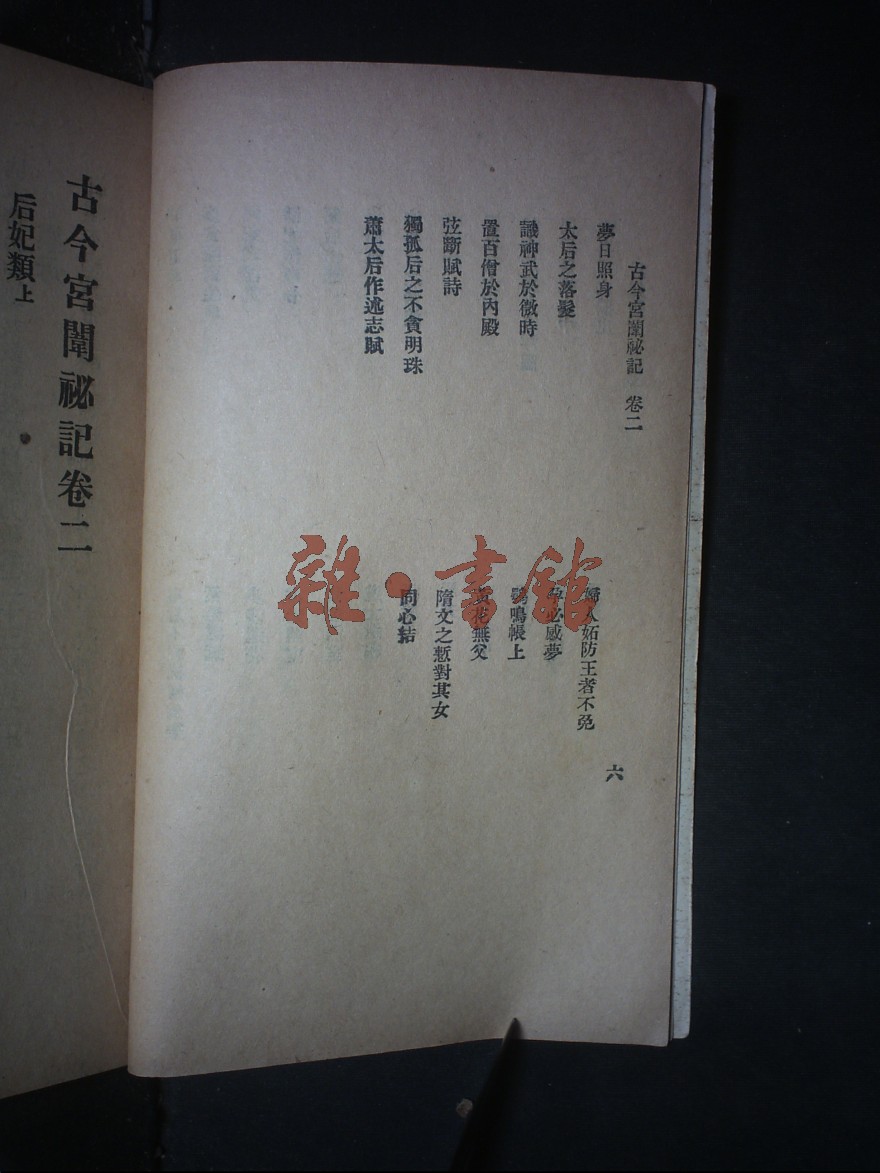 古今宮闈祕記 卷二
六
夢日照身
婦人妬防王者不免
太后之落髮
孕必感夢
識神武於微時
鳴帳上
置百僧於內殿
黃花無父
弦斷賦詩
隋文之慙對其女
獨孤后之不貪明珠
同心結
蕭太后作述志賦
古今宮闈祕記卷二
后妃類上
雜·書館